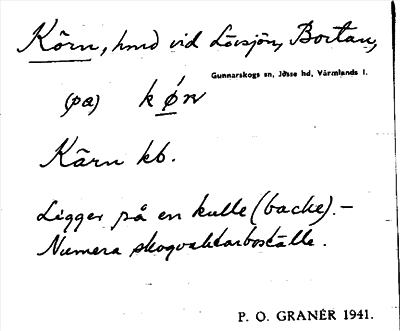 Körn, hmd vid Lövsjön, Bortan,
Gunnarskogs sn, Jösse hd, Värmlands l.
(pa) kø̀rn
Kärn kb.
Ligger på en kulle (backe). –
Numera skogvaktarboställe.
P. O. GRANÉR 1941.